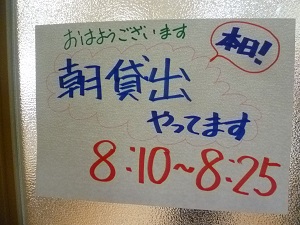 おはようございます
本日!
朝貸出
やってます
8:10~8:25